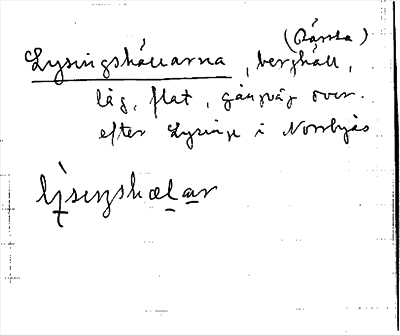 (Råssla)
Lysingshällarna, berghäll,
låg, flat, gångväg över.
efter Lysinge i Norrbyås